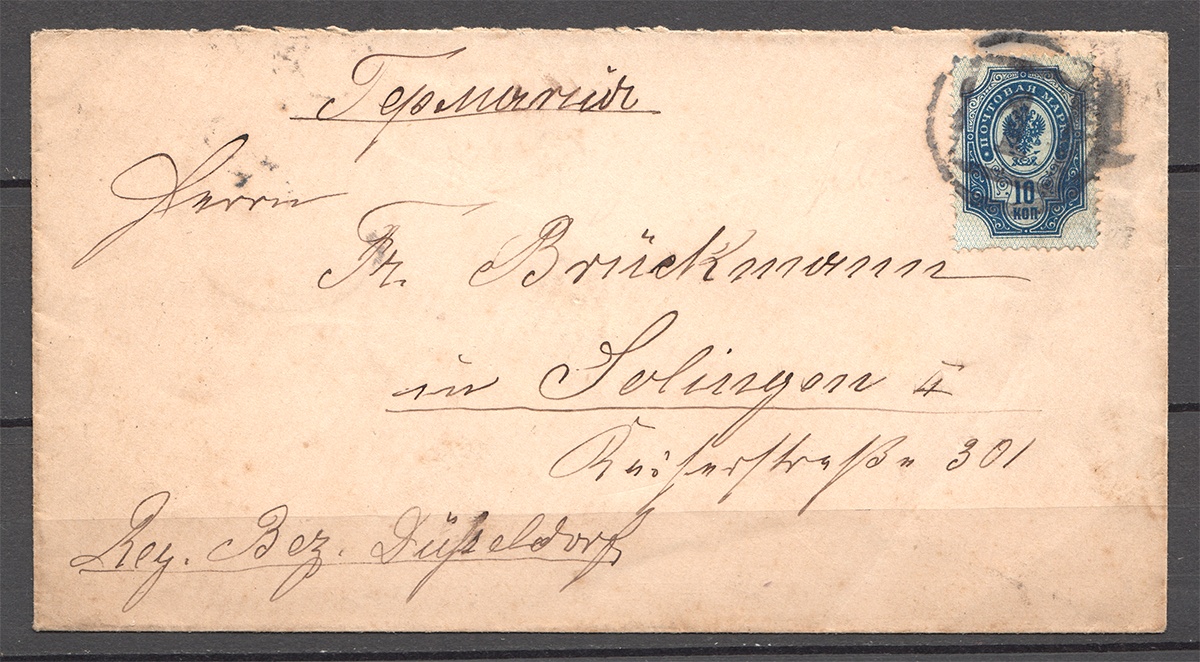 Германія
ПОЧТОВАЯ МАРКА
10
КОП
Herrn
Fr. Brückmann
in Solingen II
Kaiserstraße 301
Reg. Bez. Düsseldorf